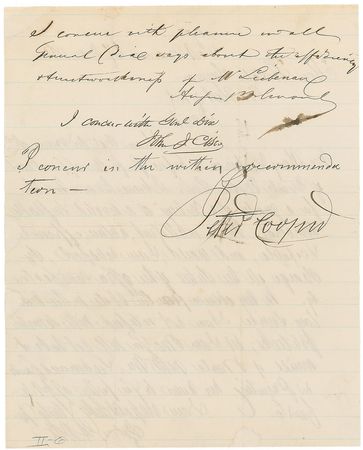 I concur with pleasure in all
General Dix says about the efficiency
& trustworthiness of Mr Liebenau
I concur with Genl Dix
John J Cisco
I concur in the within recommenda
tion —
Peter Cooper
II-G